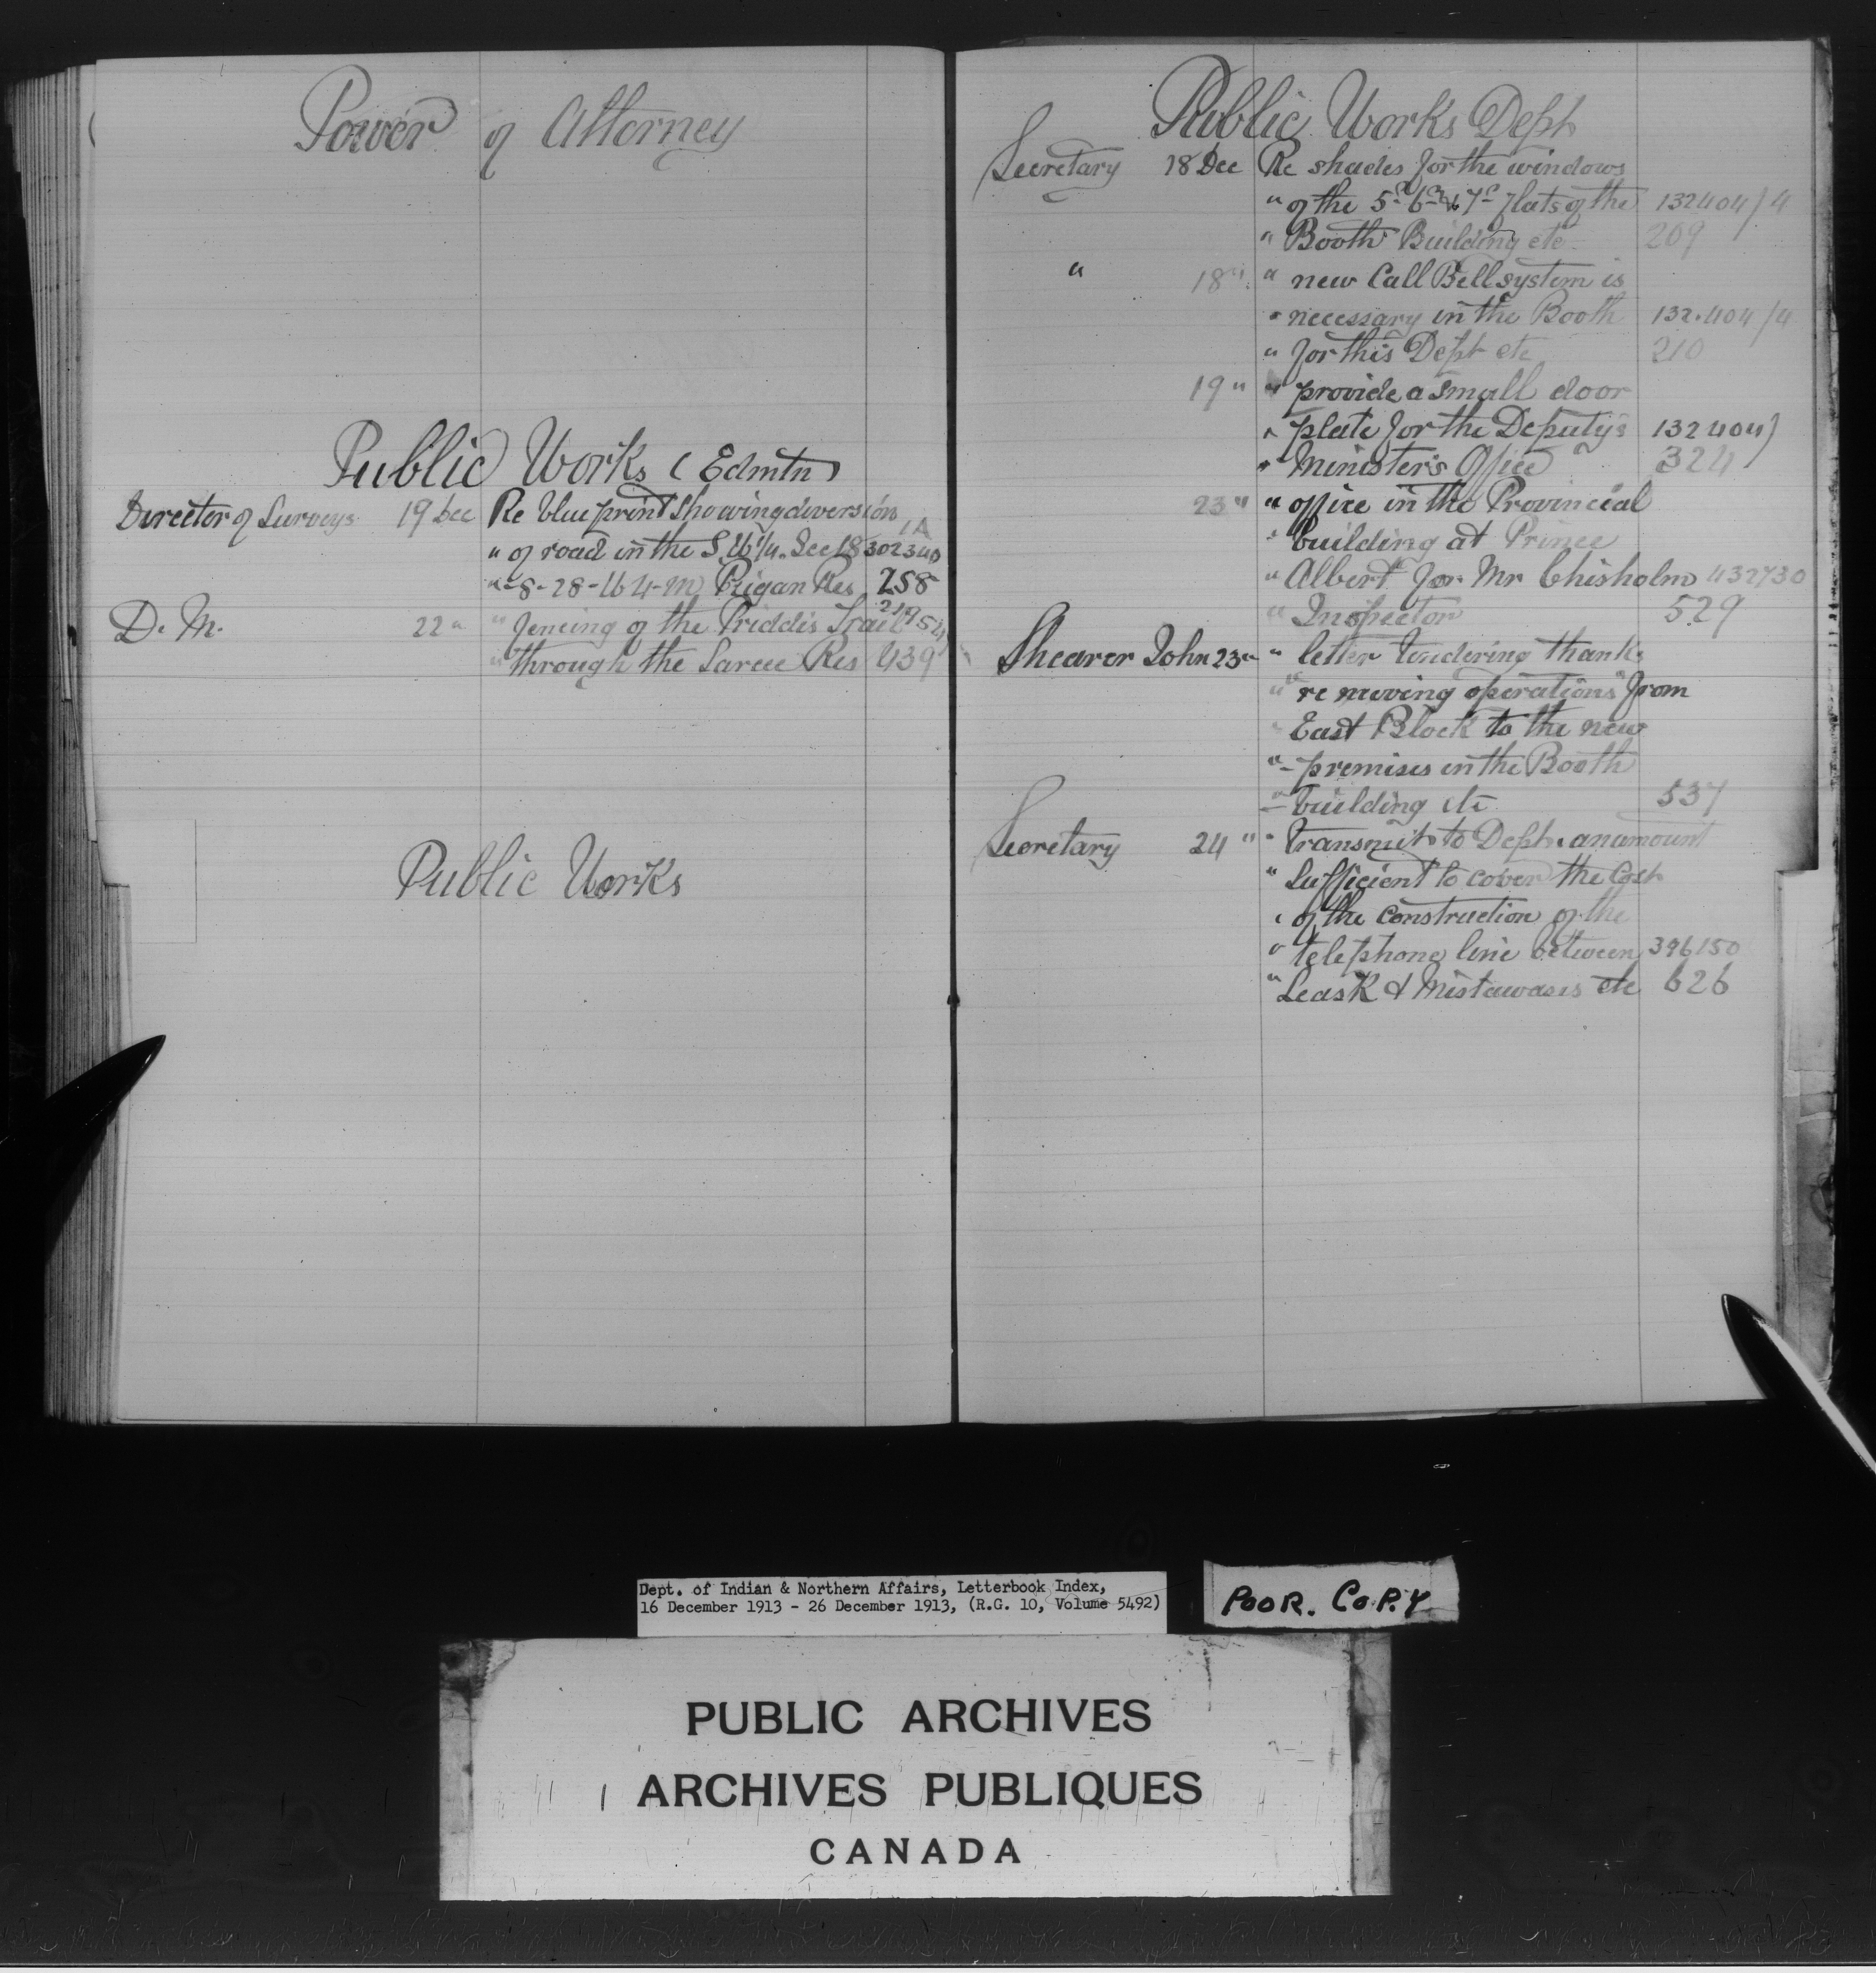 Power of Attorney
Public Works (Edmtn)
Director of Surveys 19 Dec Re blue print showing diversion 1A
" of road in the S.W 1/4. Sec 18 302340
" -8-28-W 4-M Peigan Res 258
D. M. 22 " " fencing of the Priddis Trail
" through the Sarcee Res 439
Public Works
Public Works Dept
Secretary 18 Dec Re shades for the windows
" of the 5th 6th & 7th flats of the 132404/4
" Booth Building etc 209
" 18 " " new Call Bell system is
" necessary in the Booth 132.404/4
" for this Dept etc 210
19 " " provide a small door
" plate for the Deputy's 132404/
" Minister's Office 324
23 " " office in the Provincial
" building at Prince
" Albert for Mr Chisholm 432730
" Inspector 529
Shearer John 23 " " letter tendering thanks
" re moving operations from
" East Block to the new
" premises in the Booth
" building etc 537
Secretary 24 " " transmit to Dept. an amount
" sufficient to cover the Cost
" of the construction of the
" telephone line between 396150
" Leask & Mistawasis etc 626
Dept. of Indian & Northern Affairs, Letterbook Index,
16 December 1913 - 26 December 1913, (R.G. 10, Volume 5492)
POOR. COPY
PUBLIC ARCHIVES
ARCHIVES PUBLIQUES
CANADA